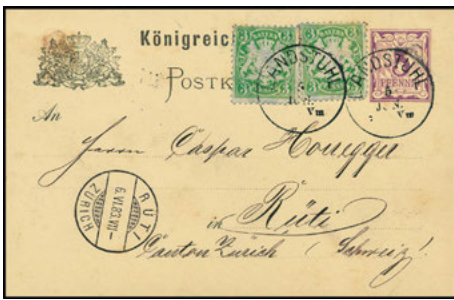 Königreic
BAYERN BAYERN
POSTK
LANDSTUHL
LANDSTUHL
PFENNIG
An
Herrn Caspar Honegger
in Rüti
Canton Zürich (Schweiz)!
RÜTI
6.VI.83.VII-
ZÜRICH